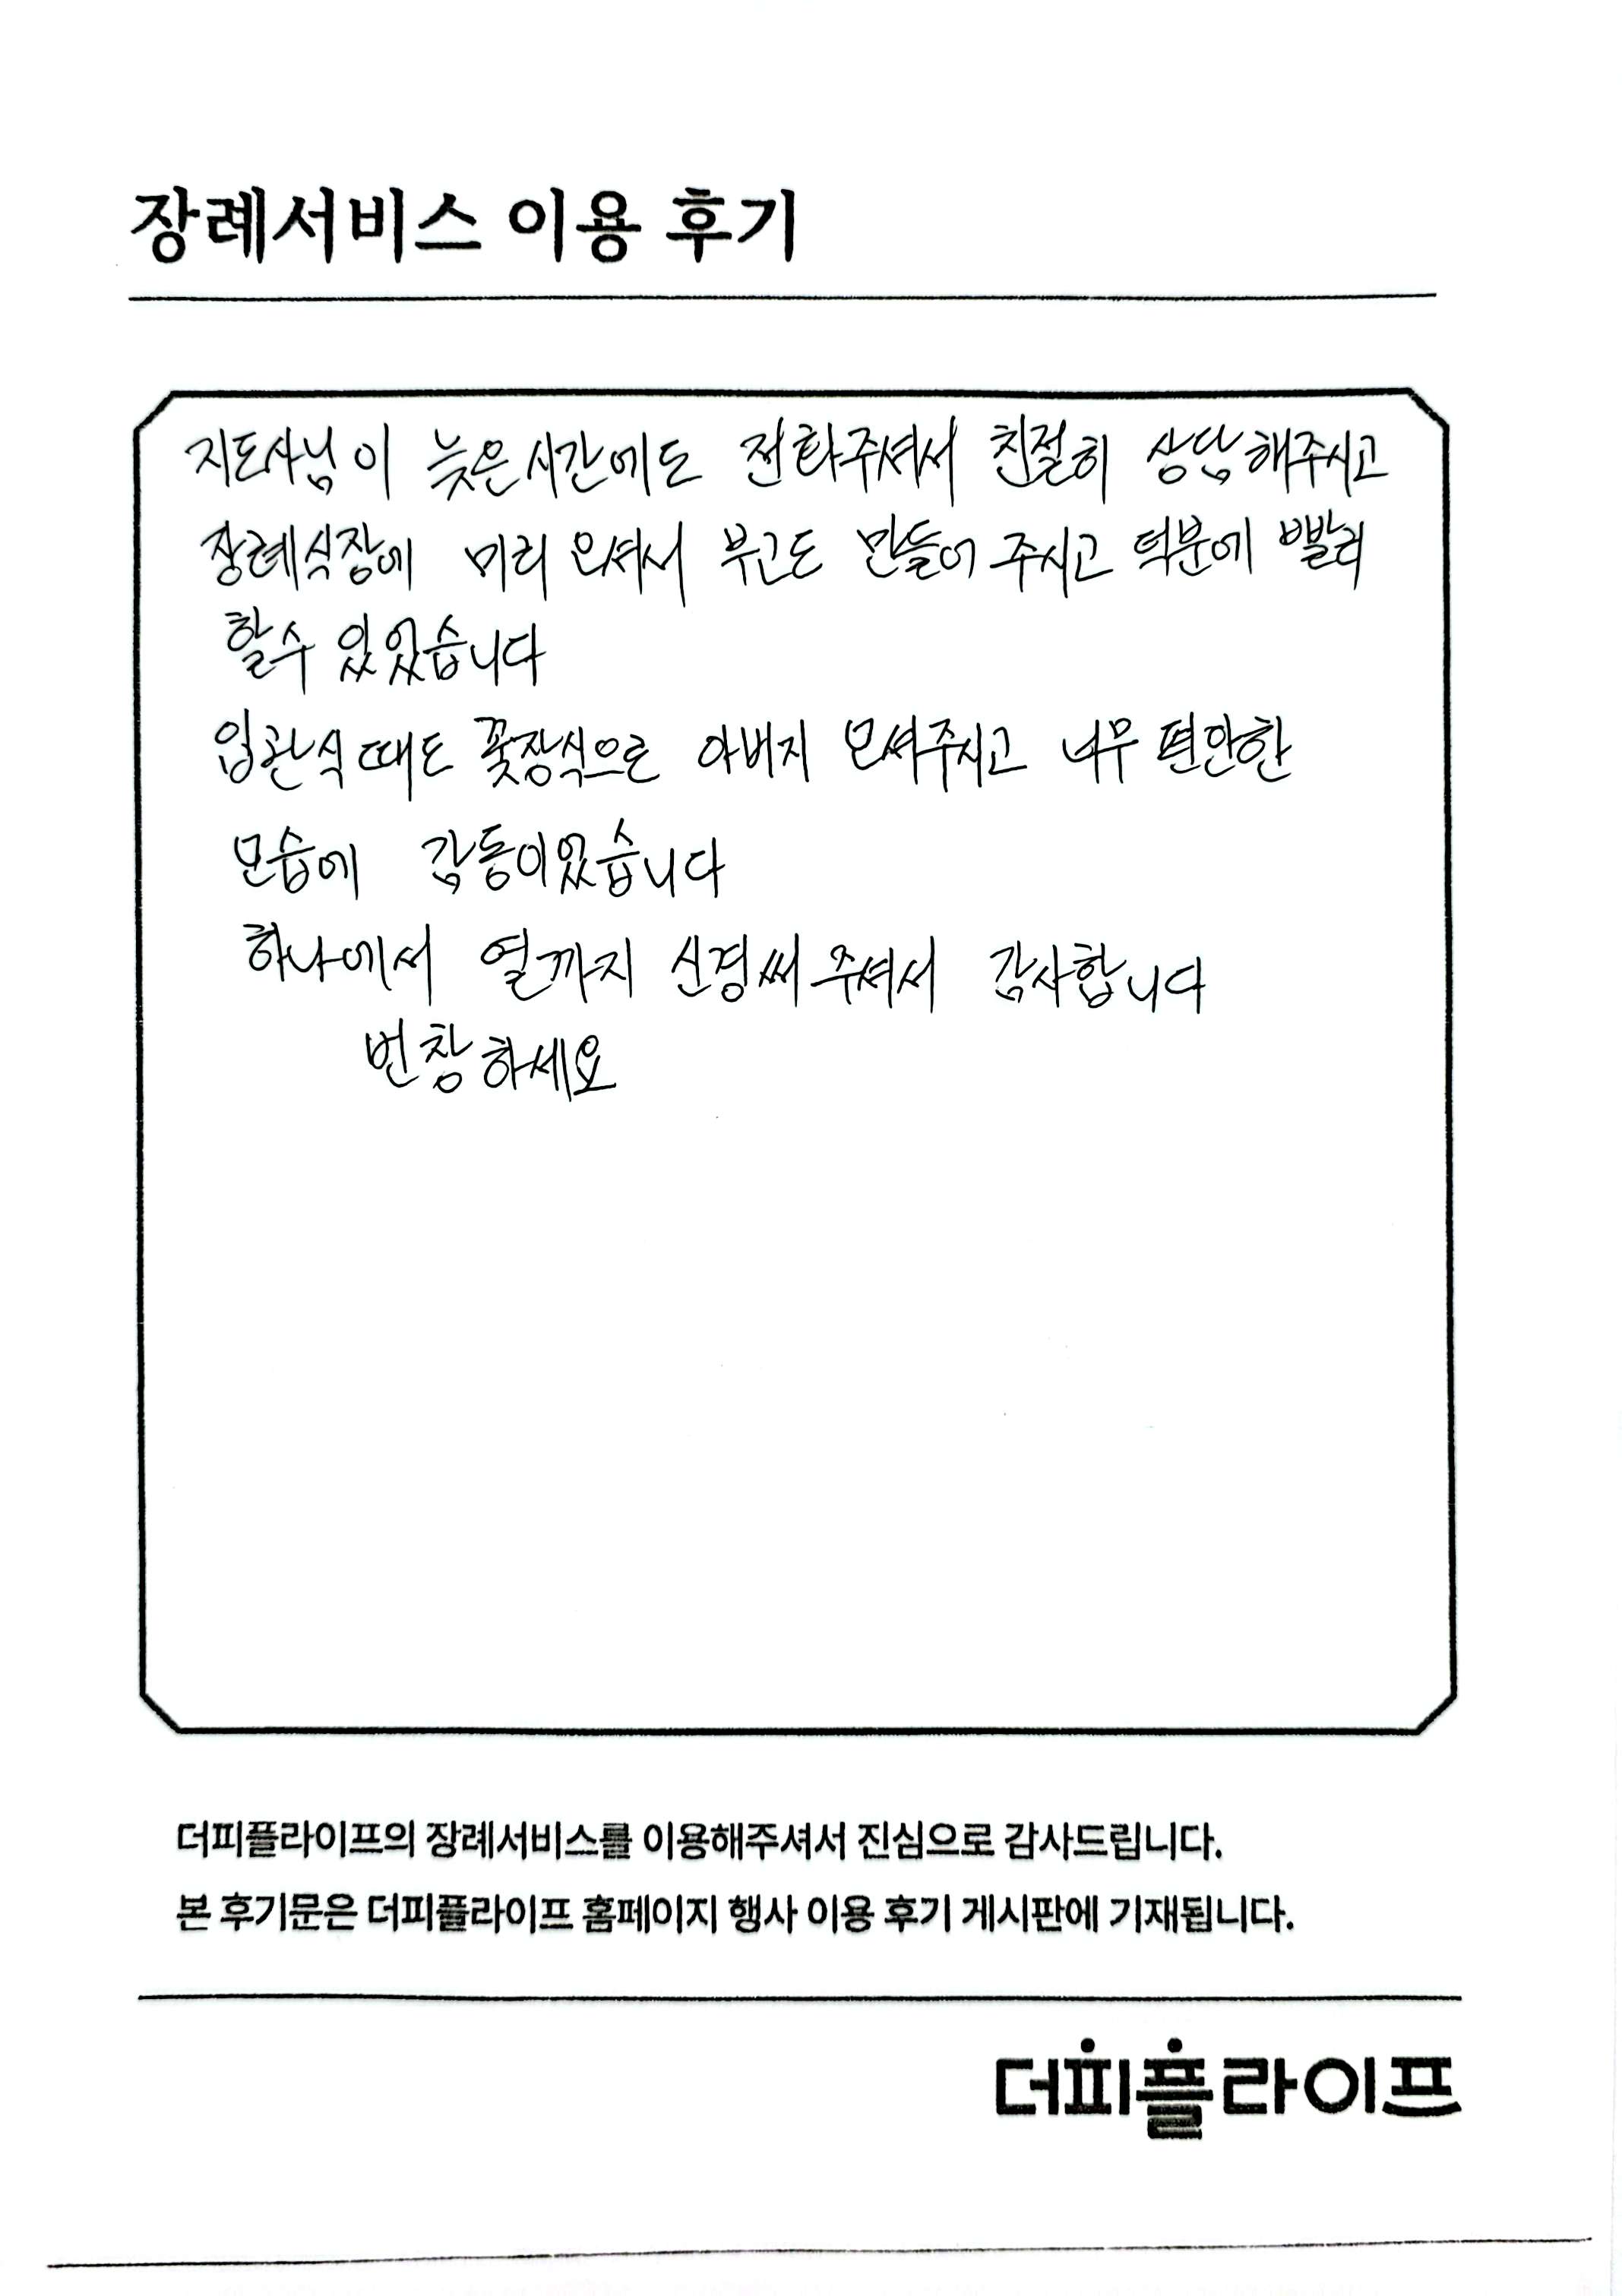 장례서비스 이용 후기
지도사님이 늦은시간에도 전화주셔서 친절히 상담해주시고
장례식장에 미리 오셔서 부고도 만들어 주시고 덕분에 빨리
할수 있었습니다
입관식 때도 꽃장식으로 아버지 모셔주시고 너무 편안한
모습에 감동이었습니다
하나에서 열까지 신경써 주셔서 감사합니다
번창하세요
더피플라이프의 장례서비스를 이용해주셔서 진심으로 감사드립니다.
본 후기문은 더피플라이프 홈페이지 행사 이용 후기 게시판에 기재됩니다.
더피플라이프